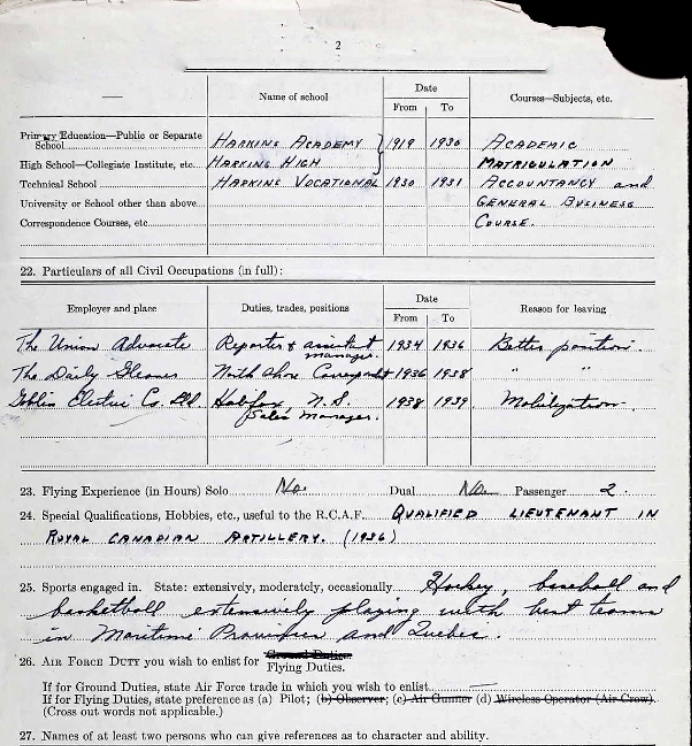 2
Name of school Date Courses—Subjects, etc.
From To
Primary Education—Public or Separate
School HARKINS ACADEMY 1919 1930 ACADEMIC
High School—Collegiate Institute, etc. HARKINS HIGH MATRICULATION
Technical School HARKINS VOCATIONAL 1930 1931 ACCOUNTANCY and
University or School other than above GENERAL BUSINESS
Correspondence Courses, etc. COURSE.
22. Particulars of all Civil Occupations (in full):
Employer and place Duties, trades, positions Date Reason for leaving
From To
The Union Advocate Reporter & assistant 1934 1936 Better position.
manager.
The Daily Gleaner North Shore 1936 1938 " "
Electric Co. Ltd. Halifax, N.S. 1938 1939 Mobilization.
Sales Manager.
23. Flying Experience (in Hours) Solo No Dual No Passenger 2.
24. Special Qualifications, Hobbies, etc., useful to the R.C.A.F. QUALIFIED LIEUTENANT IN
ROYAL CANADIAN ARTILLERY. (1936)
25. Sports engaged in. State: extensively, moderately, occasionally Hockey, baseball and
basketball extensively playing with best teams
in Maritime Provinces and Quebec.
26. AIR FORCE DUTY you wish to enlist for Ground Duties
Flying Duties.
If for Ground Duties, state Air Force trade in which you wish to enlist —
If for Flying Duties, state preference as (a) Pilot; (b) Observer; (c) Air Gunner (d) Wireless Operator (Air Crew).
(Cross out words not applicable.)
27. Names of at least two persons who can give references as to character and ability.